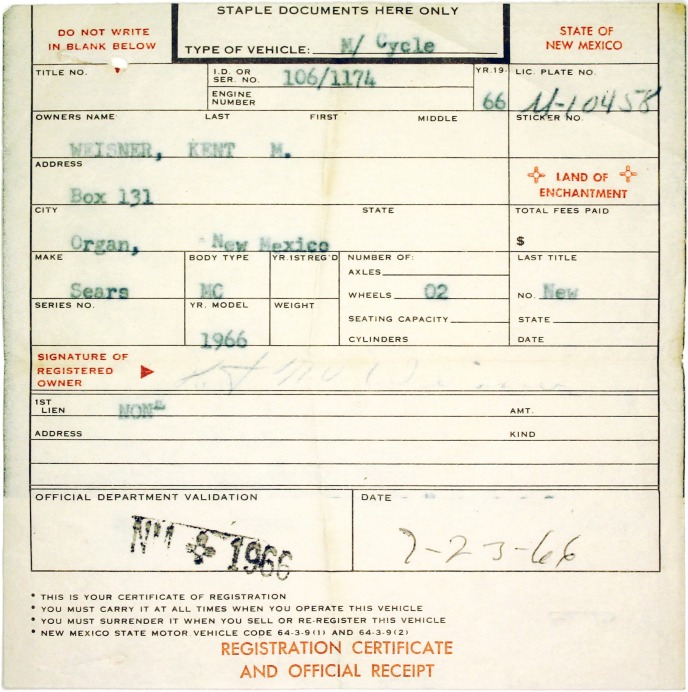 STAPLE DOCUMENTS HERE ONLY
DO NOT WRITE
IN BLANK BELOW
TYPE OF VEHICLE: M/ Cycle
STATE OF
NEW MEXICO
TITLE NO.
I.D. OR
SER. NO. 106/1174
ENGINE
NUMBER
YR.19-
66
LIC. PLATE NO.
M-10458
OWNERS NAME LAST FIRST MIDDLE
STICKER NO.
WEISNER, KENT M.
ADDRESS
Box 131
LAND OF
ENCHANTMENT
CITY STATE
TOTAL FEES PAID
Organ, New Mexico
$
MAKE BODY TYPE YR.1ST REG'D NUMBER OF: LAST TITLE
AXLES
Sears MC WHEELS 02 NO. New
SERIES NO. YR. MODEL WEIGHT
SEATING CAPACITY STATE
1966 CYLINDERS DATE
SIGNATURE OF
REGISTERED
OWNER
1ST
LIEN NONE AMT.
ADDRESS KIND
OFFICIAL DEPARTMENT VALIDATION DATE
NM 1966
7-23-66
* THIS IS YOUR CERTIFICATE OF REGISTRATION
* YOU MUST CARRY IT AT ALL TIMES WHEN YOU OPERATE THIS VEHICLE
* YOU MUST SURRENDER IT WHEN YOU SELL OR RE-REGISTER THIS VEHICLE
* NEW MEXICO STATE MOTOR VEHICLE CODE 64-3-9(1) AND 64-3-9(2)
REGISTRATION CERTIFICATE
AND OFFICIAL RECEIPT